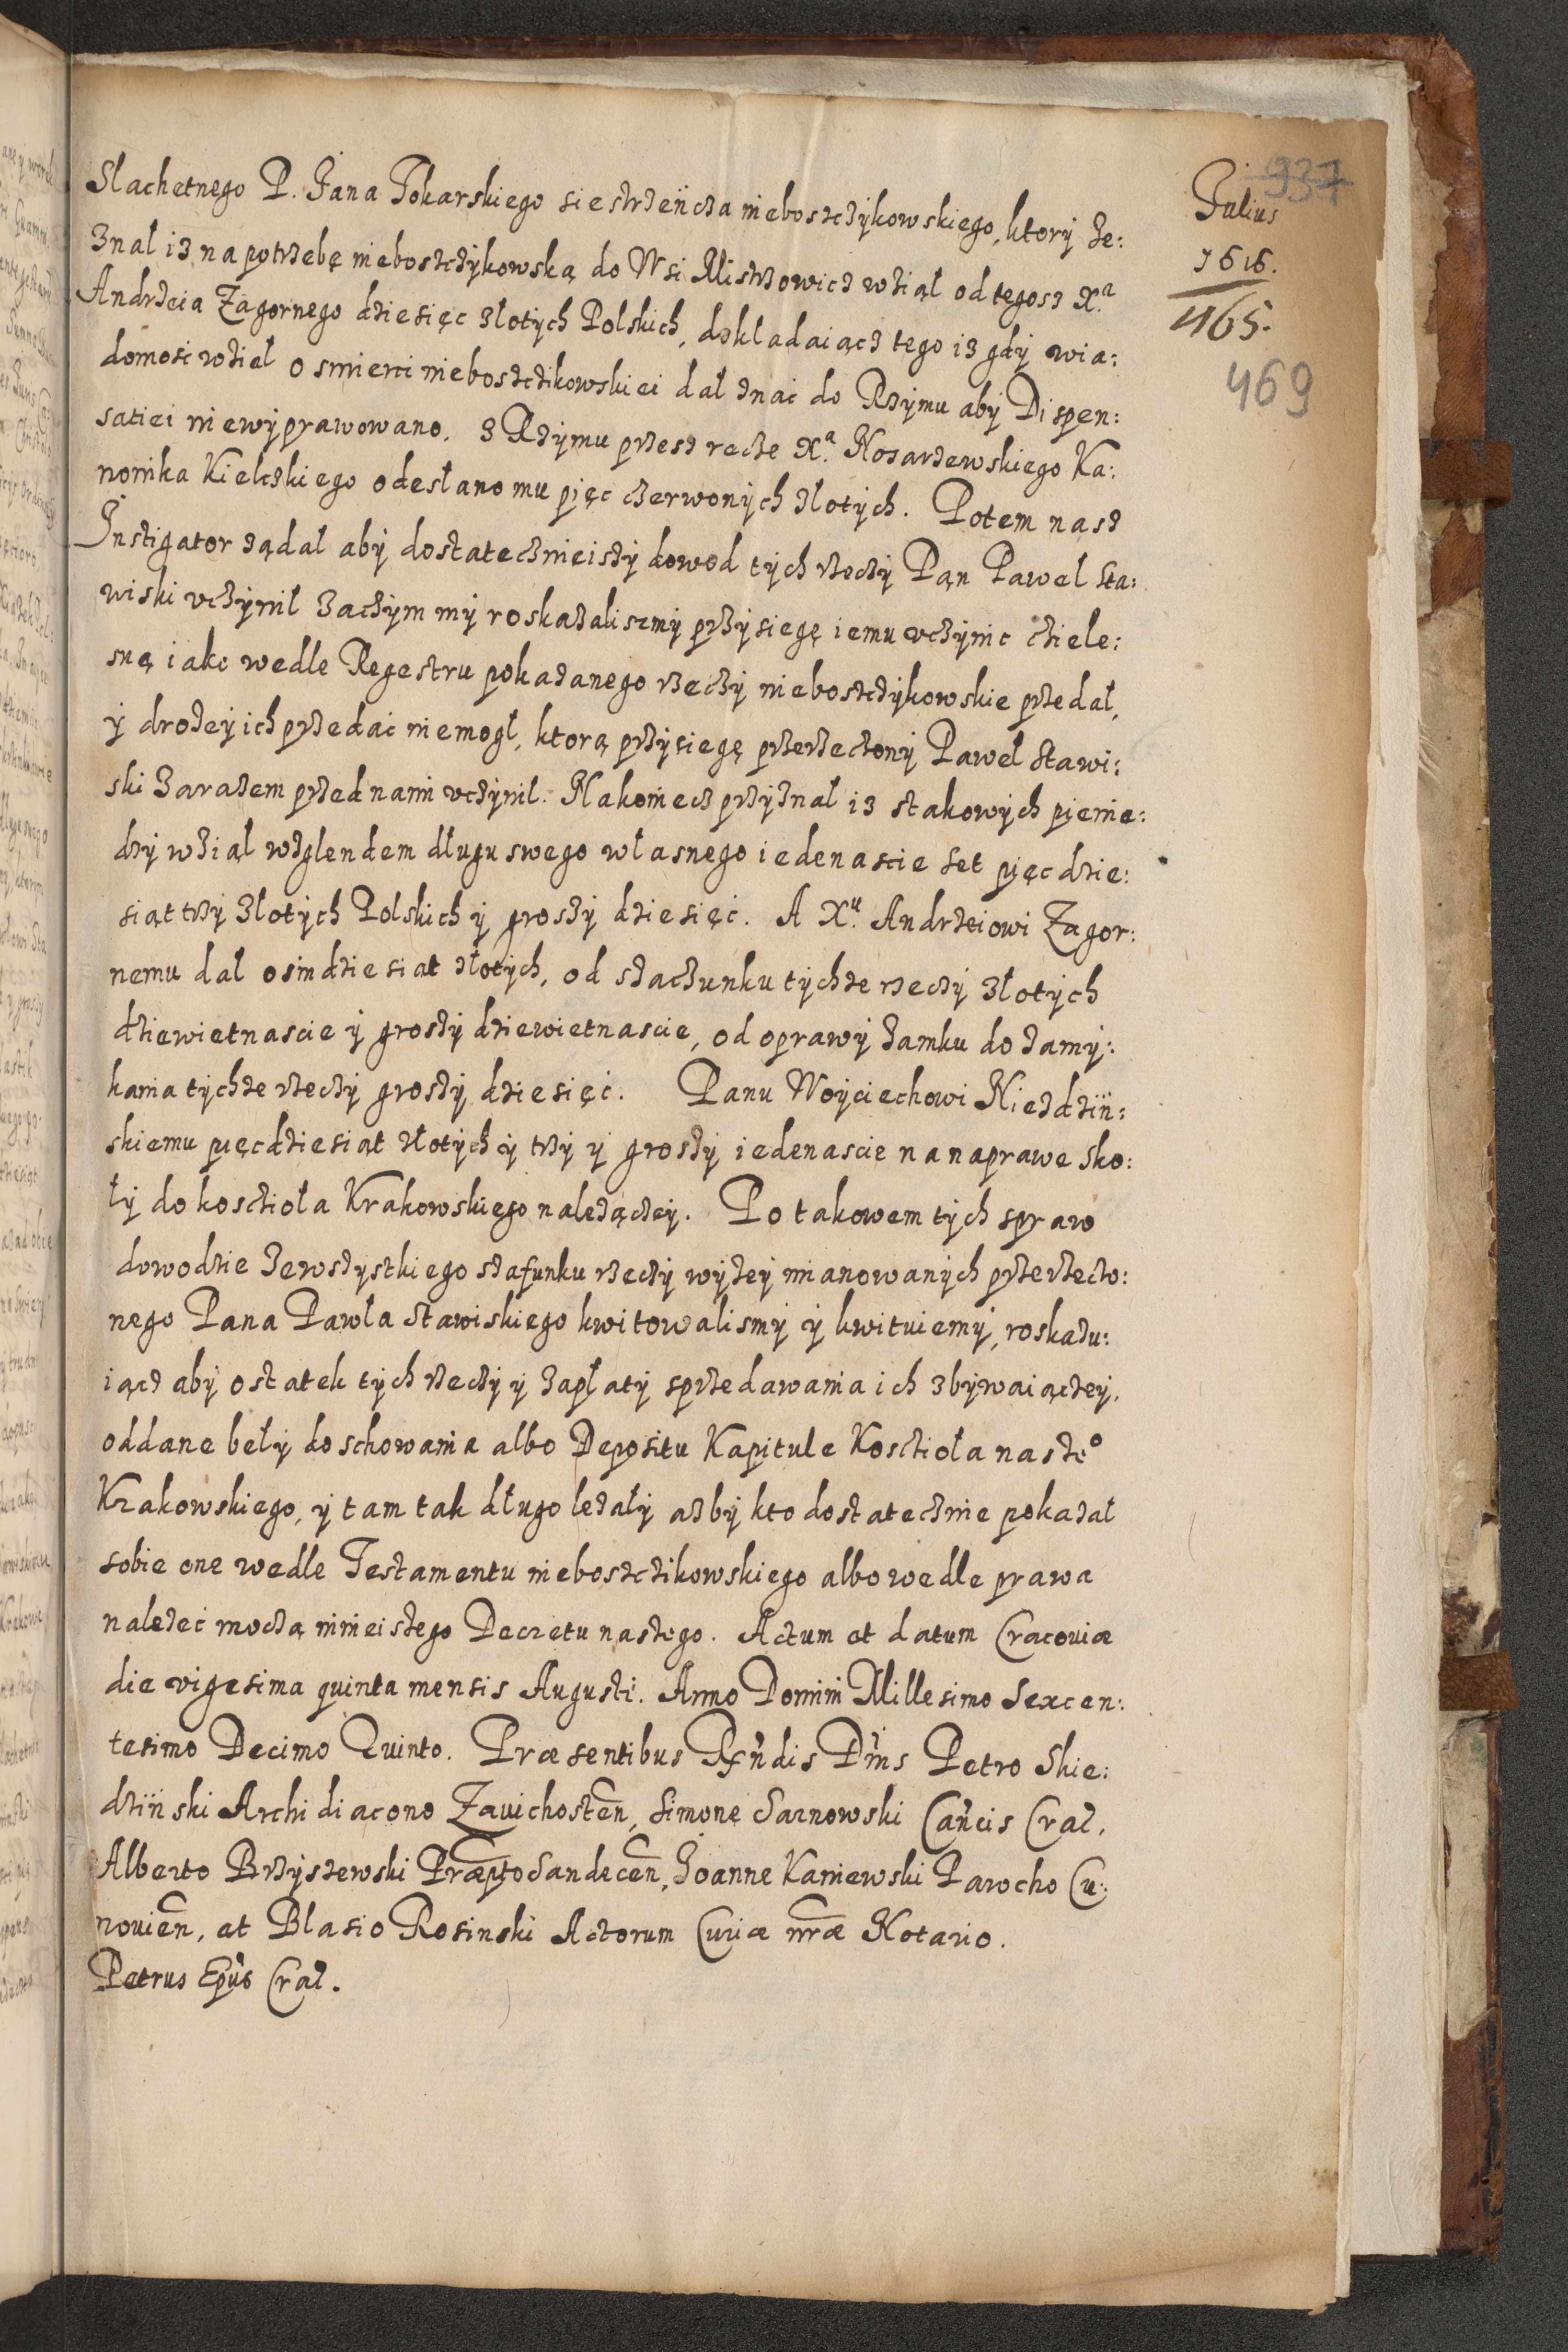 937
Julius
1616.
465.
469
Slachetnego P. Jana Tokarskiego siestrzeńcza nieboszczykowskiego, ktory ze:
znał iz na potrzebę nieboszczykowską do Wsi Mistrzowicz wział od tegosz Xᵃ
Andrzeia Zagornego dziesięc złotych Polskich, dokładaiącz tego iz gdy wia:
domosc wział o smierci nieboszczikowskiei dał znac do Rzymu aby Dispen:
satiei niewyprawowano. z Rzymu przesz recze Xᵃ. Kosarzewskiego Ka:
nonika Kielczkiego odesłano mu pięc czerwonych złotych. Potem nasz
Instigator ządał aby dostatecznieiszy dowod tych rzeczy Pan Paweł Sta:
wiski vczynił zaczym my roskazalismy przysięgę iemu vczynic cziele:
sną iako wedle Regestru pokazanego rzeczy nieboszczykowskie przedał,
y drozey ich przedac niemogł, ktorą przysięgę przerzeczony Paweł Stawi:
ski zarazem przed nami vczynił. Nakoniecz przyznał iz stakowych pienie:
dzy wział wzglendem długu swego własnego iedenascie set pięcdzie:
siąt trzy złotych Polskich y groszy dziesięc. A Xᵘ. Andrzeiowi Zagor:
nemu dał osmdziesiat złotych, od szaczunku tychze rzeczy złotych
dziewietnascie y groszy dziewietnascie, od oprawy zamku do zamy:
kania tychze rzeczy groszy dziesięc. Panu Woyciechowi Niezdziń:
skiemu pięcdziesiąt złotych y trzy y groszy iedenascie na naprawe sko:
ły do kosczioła Krakowskiego nalezączey. Po takowem tych spraw
dowodzie zewszystkiego szafunku rzeczy wyzey mianowanych przerzeczo:
nego Pana Pawła Stawiskiego kwitowalismy y kwituiemy, roskazu:
iącz aby ostatek tych rzeczy y zapłaty sprzedawania ich zbywaiączey,
oddane beły do schowania albo Depositu Kapitule Kosczioła naszeᵒ
Krakowskiego, y tam tak długo lezały azby kto dostatecznie pokazał
sobie one wedle Testamentu nieboszczikowskiego albo wedle prawa
nalezec moczą ninieiszego Decretu naszego. Actum et datum Cracoviæ
die vigesima quinta mensis Augusti. Anno Domini Millesimo Sexcen:
tesimo Decimo Quinto. Præsentibus Rndis Dnis Petro Skie:
dziński Archidiacono Zavichosten, Simone Sarnowski Cancis Crac.
Alberto Brzyszewski Præpto Sandecen, Joanne Kaniewski Parocho Cu:
novien, at Blasio Rosinski Actorum Curiæ nræ Notario.
Petrus Epus Crac.